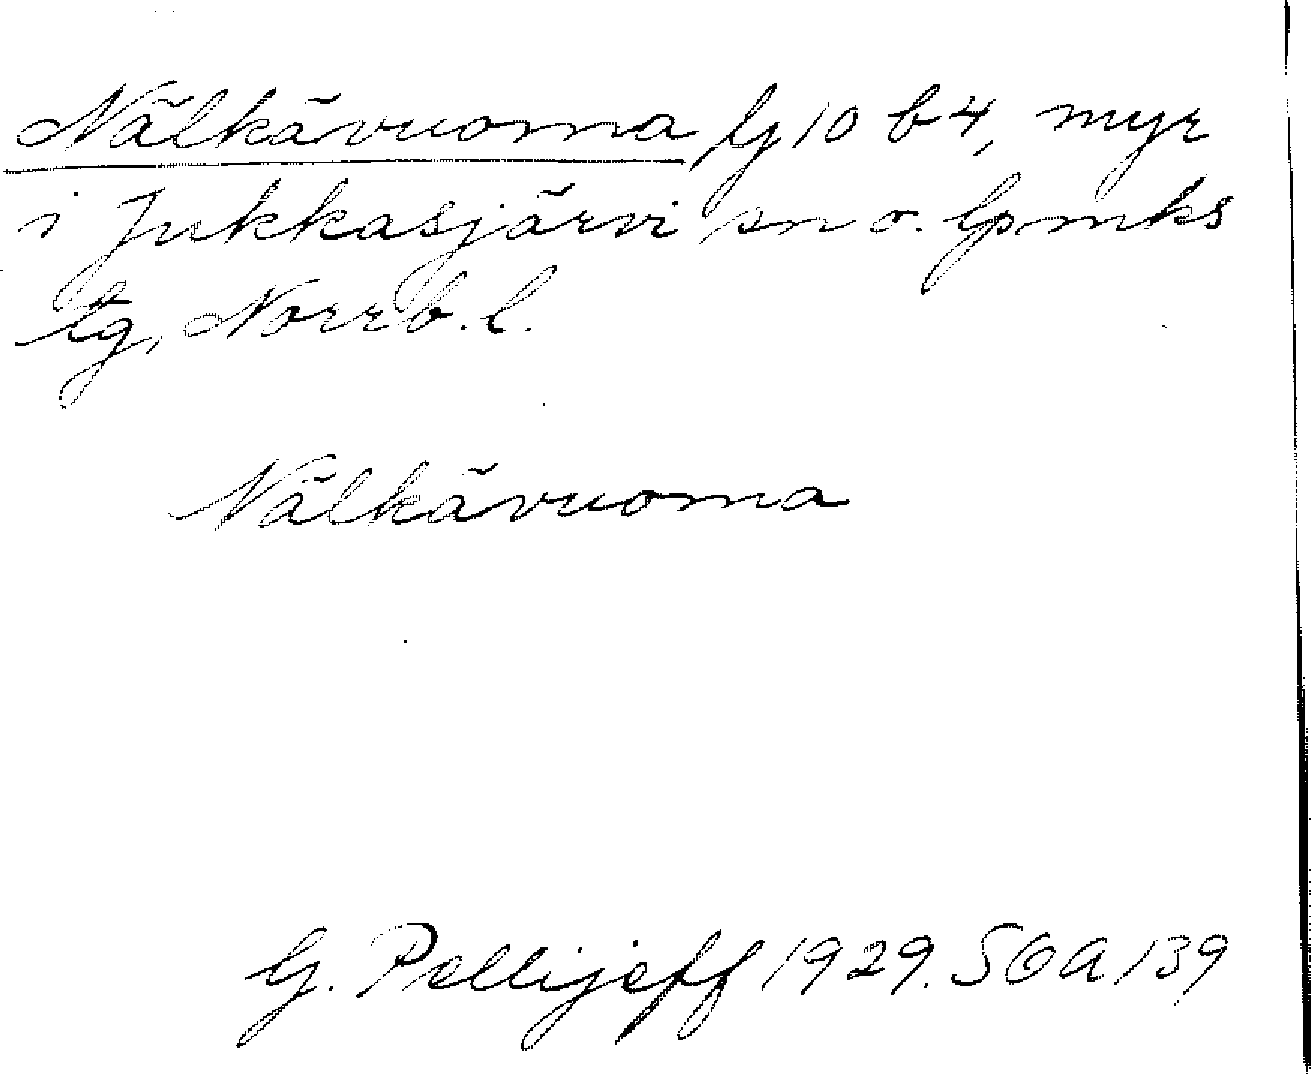 Nälkävuoma G 10 b 4, myr
i Jukkasjärvi sn o. lpmks
tg, Norrb. l.
Nälkävuoma
G. Pellijeff 1929. SOA 139